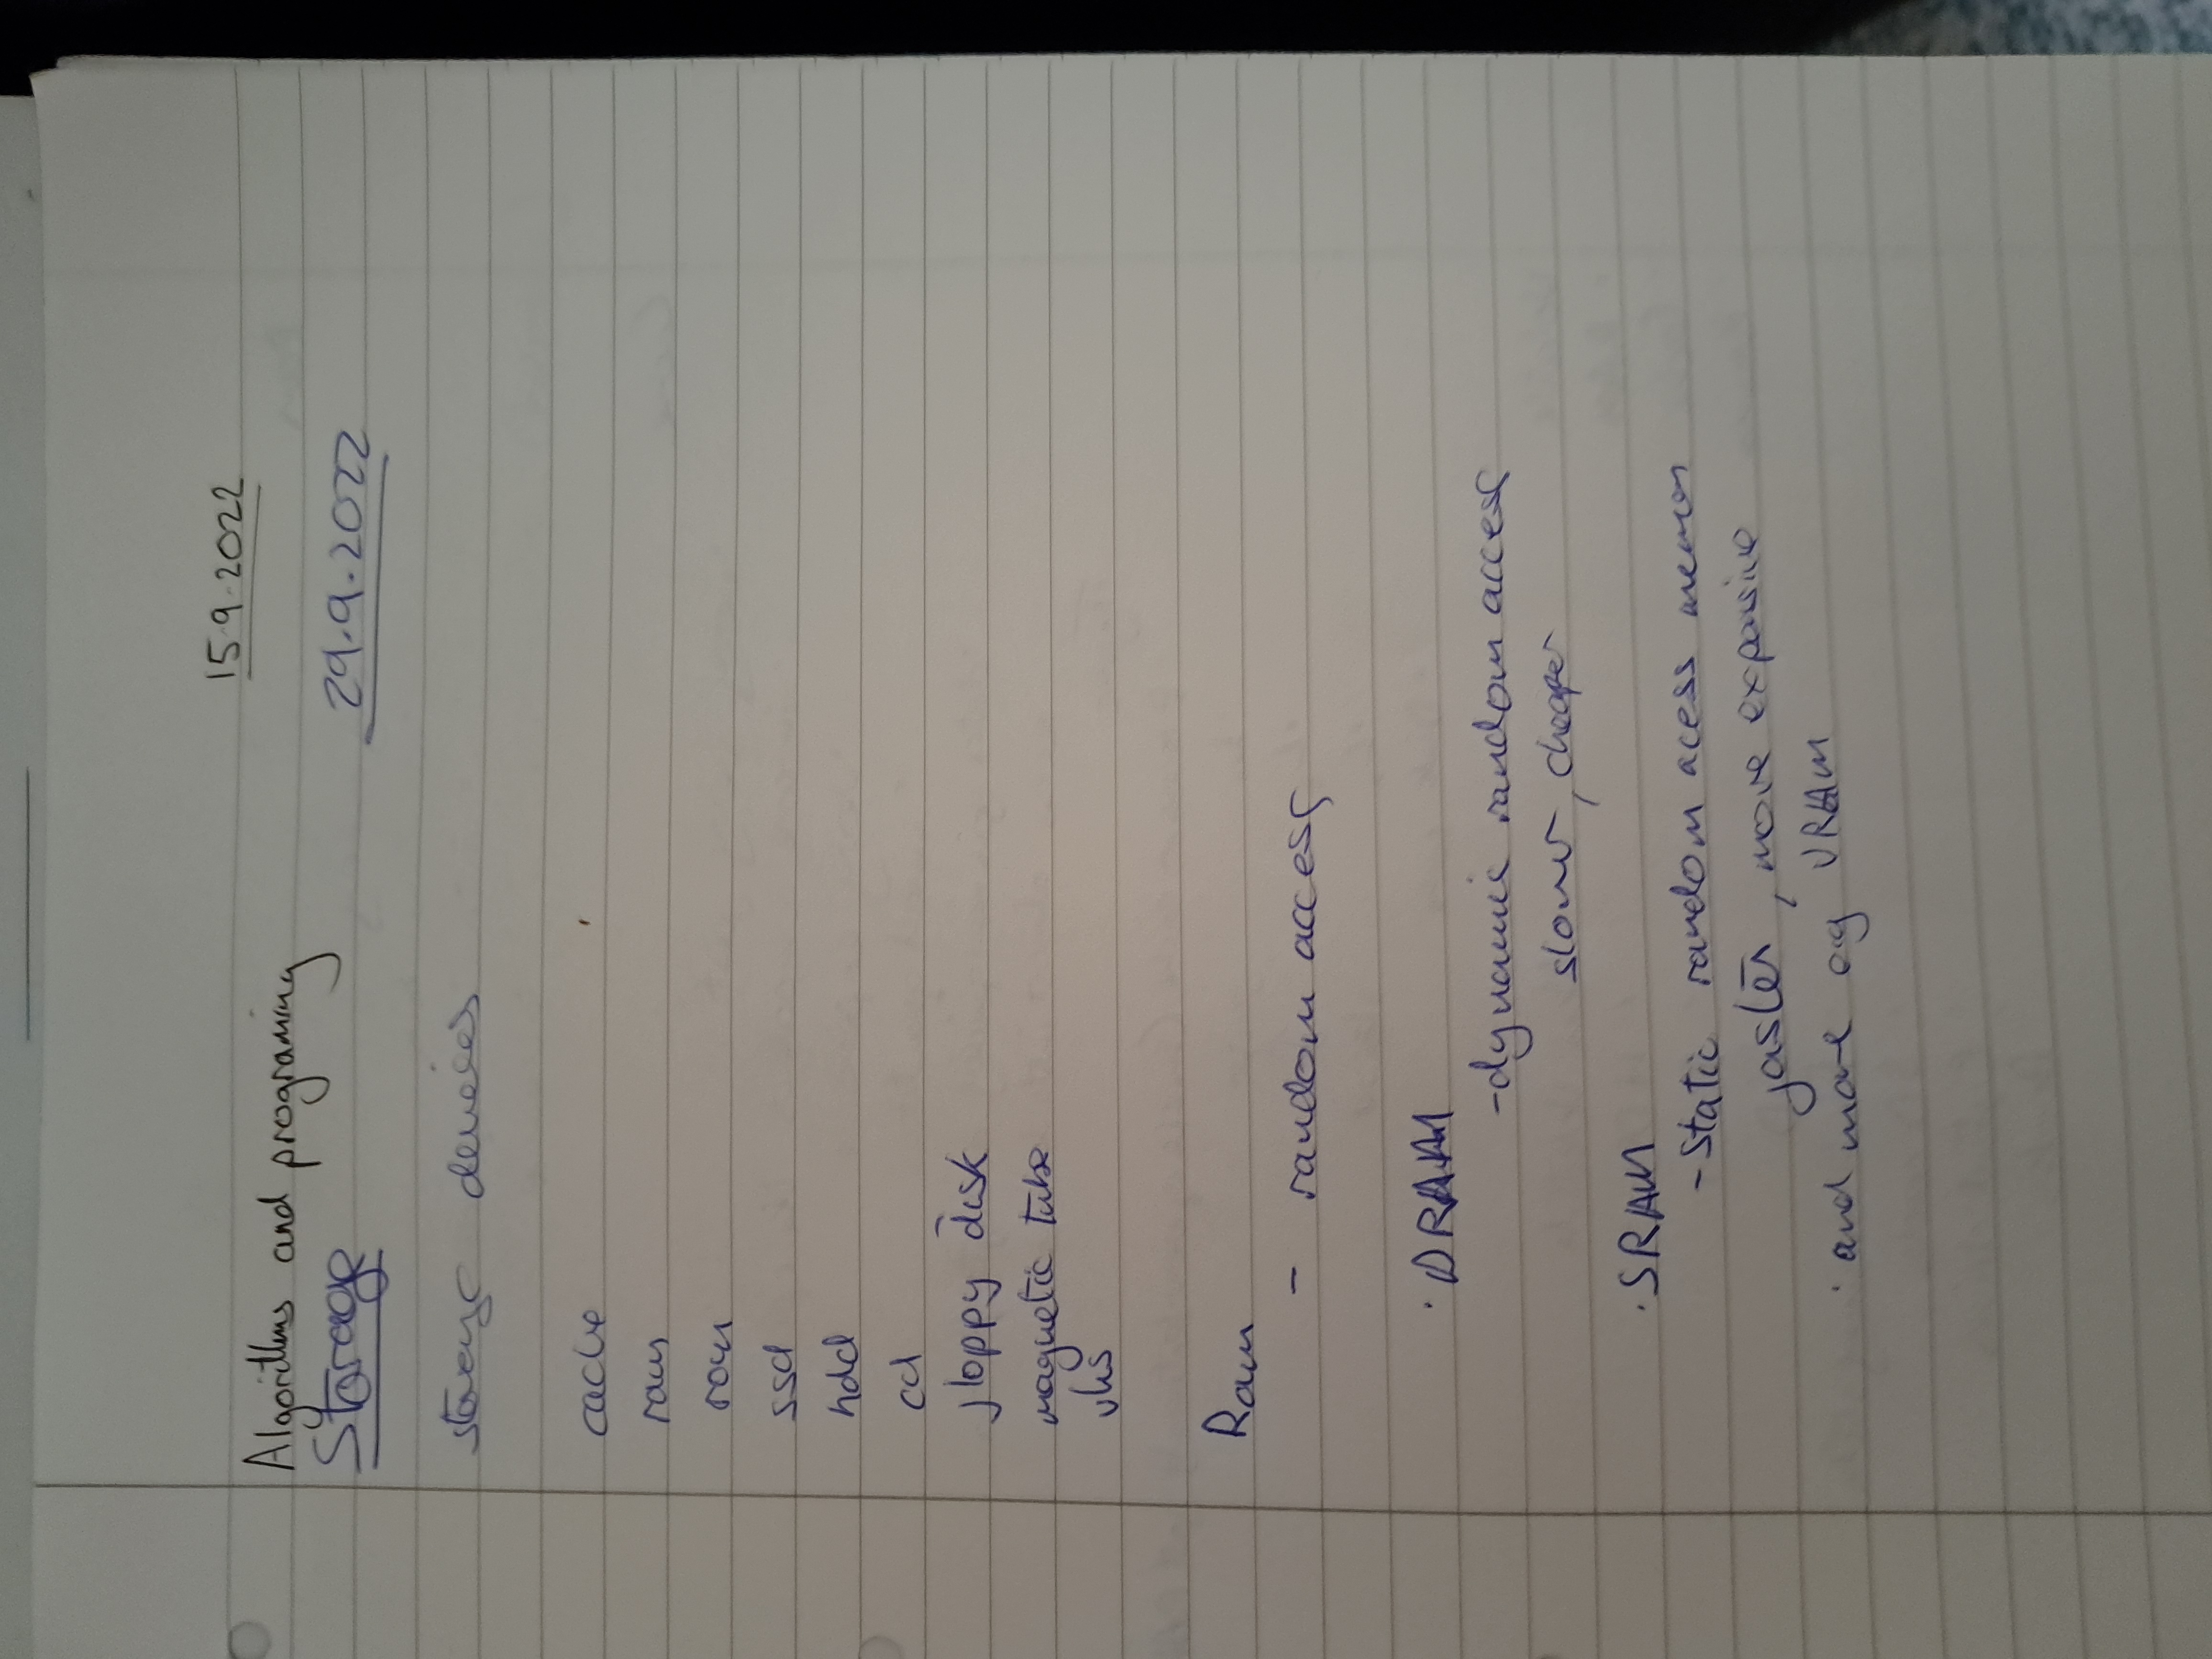 15.9.2022
Algorithms and programing
Storage 29.9.2022
storage devices
cache
ram
rom
ssd
hdd
cd
floppy disk
magnetic tube
vhs
Ram
- random access
. DRAM
- dynamic random access
slower, cheaper
. SRAM
- static random access memory
faster, more expensive
. and more eg VRAM